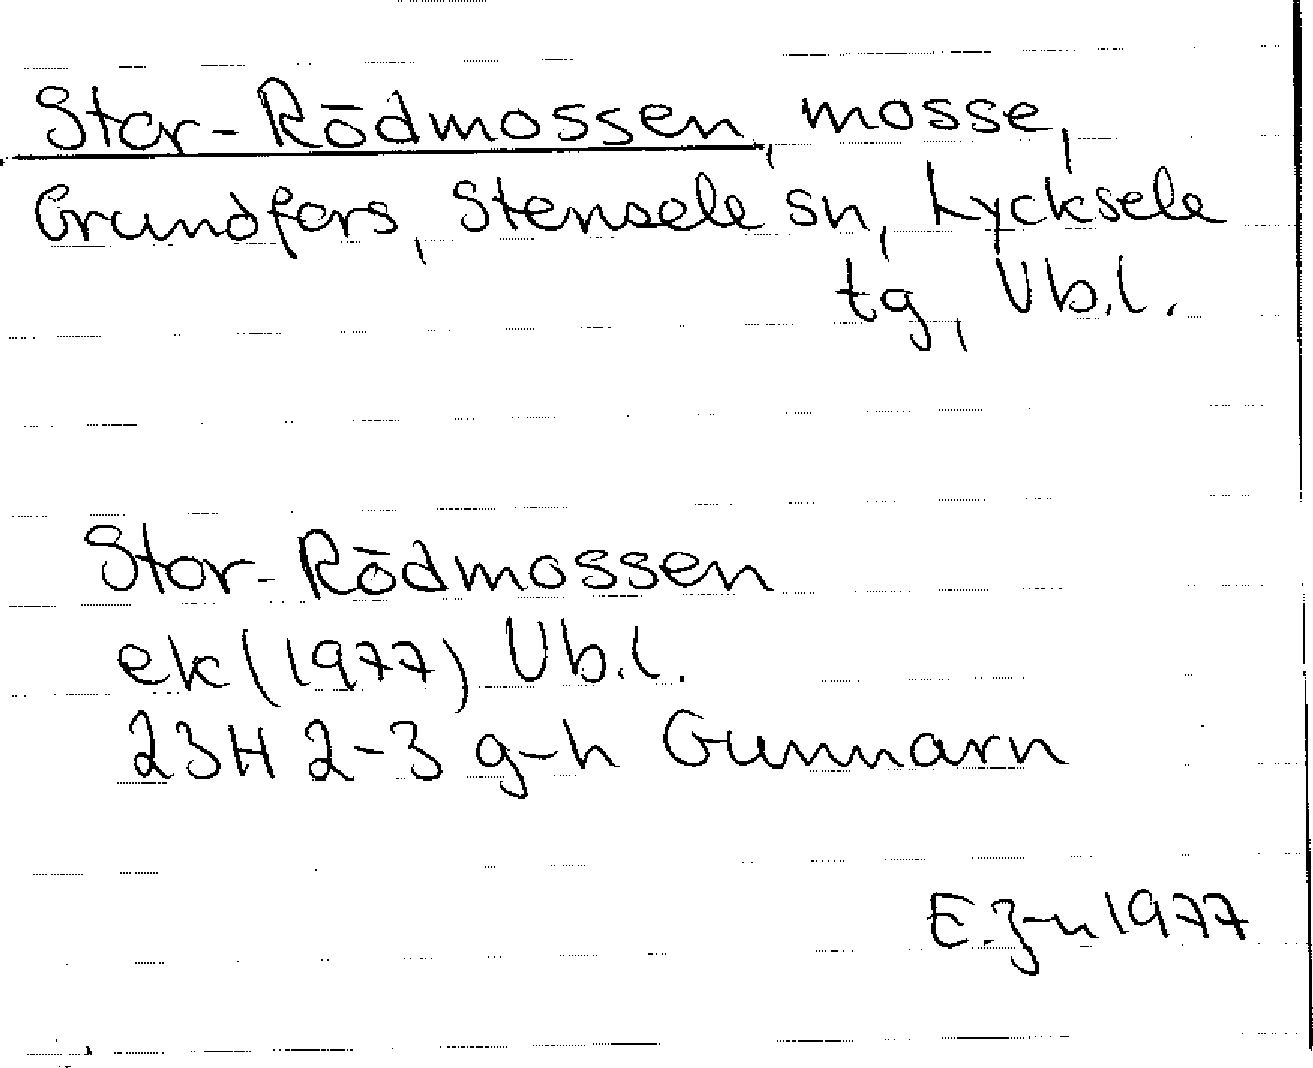 Stor-Rödmossen, mosse,
Grundfors, Stensele sn, Lycksele
tg, Vb.l.
Stor-Rödmossen
ek (1977) Vb.l.
23H 2-3 g-h Gunnarn
E.J-n 1977